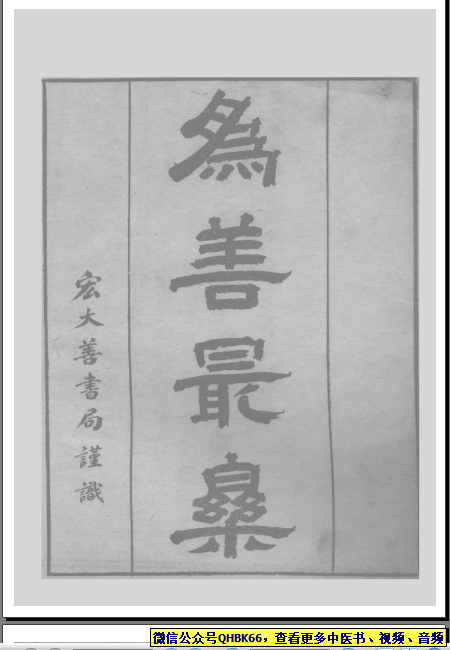 為善最樂
宏大善書局謹識
微信公众号QHBK66，查看更多中医书、视频、音频